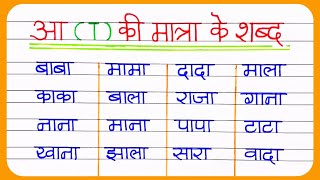 आ ( ा ) की मात्रा के शब्द
बाबा मामा दादा माला
काका बाला राजा गाना
नाना माना पापा टाटा
खाना झाला सारा वादा